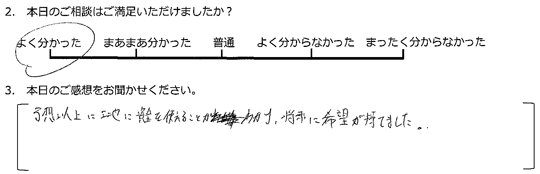 2. 本日のご相談はご満足いただけましたか？
よく分かった まあまあ分かった 普通 よく分からなかった まったく分からなかった
3. 本日のご感想をお聞かせください。
予想以上に に を使えることが わかり、将来に希望が持てました。